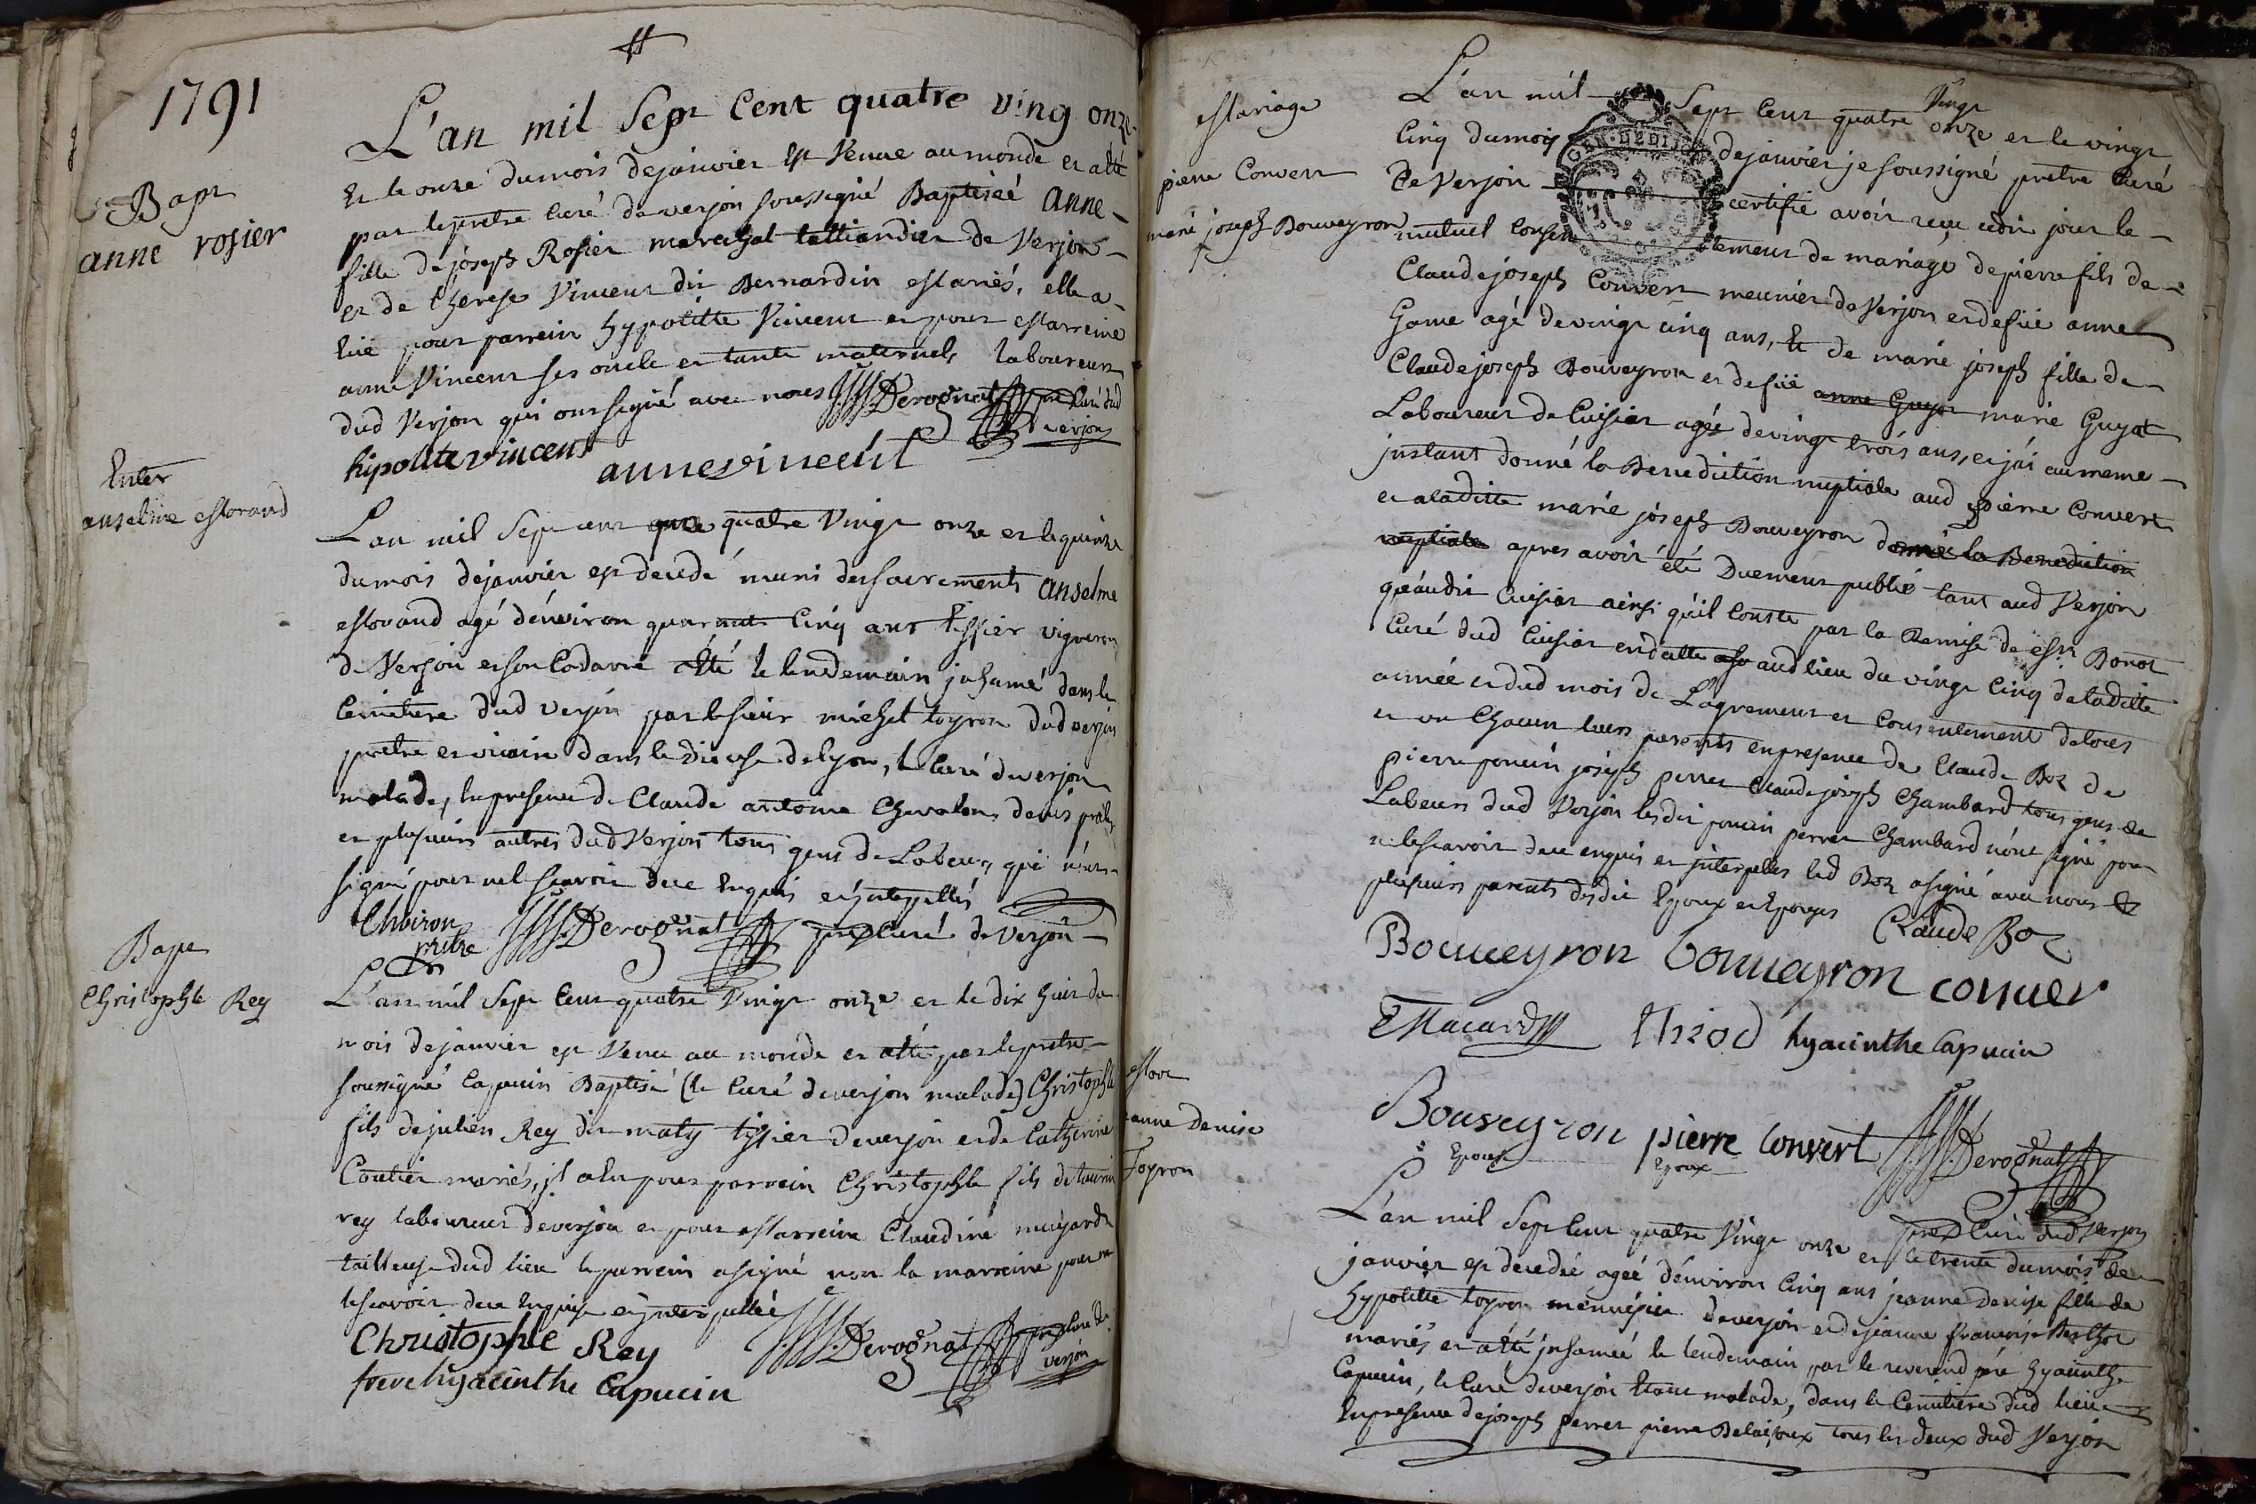 1791
L'an mil Sept Cent quatre ving onze
Et le onze du mois de janvier Est Venue au monde et a été
Bapt
anne rosier
par le pretre curé de verjon soussigné Baptiseé anne
fille de joseph Rosier marechal talliandier de Verjon
et de therese Vincent dit Bernardin Mariés, elle a
eüe pour parrein hypolitte Vincent et pour Marreine
anne Vincent ses oncle et tante maternels laboureurs
dud Verjon qui ont signé avec nous Derognat pre Curé dud
verjon
hipolite vincent
anne vincent
Enter
anselme Morand
L'an mil Sept cent quatre Vingt onze et le quinze
du mois de janvier est decedé muni des sacrements anselme
Morand agé d'environ quarante Cinq ans tissier vigneron
de Verjon et son Cadavre a été le lendemain inhumé dans le
Cimetiere dud verjon par le sieur michel toyron dud verjon
pretre et vicaire dans le Diocese de lyon, le Curé de verjon
malade, En presence de Claude antoine Chevalon denis
et plusieurs autres dud Verjon tous gens de Labeur qui n'ont
signé pour ne le scavoir de ce Enquis et interpellés
pretre Derognat pre Curé de Verjon
Bapt
Christophle Rey
L'an mil Sept Cent quatre Vingt onze et le dix huit du
mois de janvier est Venu au monde et a été par le pretre
soussigné Capucin Baptisé (le Curé de verjon malade) Christophle
fils de julien Rey dit maty tissier de verjon et de Catherine
Coutier mariés, il a eu pour parrein Christophle fils de
rey laboureur de verjon et pour Marreine Claudine
tailleuse dud lieu le parrein a signé non la marreine pour ne
le scavoir de ce Enquise et interpellée
Christophle Rey Derognat pre Curé de
verjon
frere hyacinthe Capucin
Mariage
pierre Convert
marie joseph Bouveyron
L'an mil Sept Cent quatre Vingt onze et le vingt
Cinq du mois de janvier je soussigné pretre Curé
De Verjon certifie avoir reçu cedit jour le
mutuel Consentement de mariage de pierre fils de
Claude joseph Convert meunier de Verjon et defüe anne
Game agé de vingt cinq ans, Et de marie joseph fille de
Claude joseph Bouveyron et defüe anne Guyot marie Guyot
Laboureur de Cuisiat agée de vingt trois ans, et j'ai au meme
instant donné la Benediction nuptiale aud pierre Convert
et a ladite marie joseph Bouveyron donné la Benediction
nuptiale apres avoir été Duement publié tant aud Verjon
qu'audit Cuisiat ainsi qu'il Conste par la Remise de Mr Bonot
Curé dud Cuisiat en datte aud lieu du vingt Cinq de ladite
année et dud mois de L'agrement et Consentement de tous
et un Chacun leurs parents en presence de Claude Boz de
pierre poncin joseph perret Claude joseph Chambard tous gens de
Labeur dud Verjon lesdit poncin perret Chambard n'ont signé pour
ne le scavoir de ce enquis et interpellés led Boz a signé avec nous &
plusieurs parents desdit Epoux et Epouses
Claude Boz
Bouveyron bouveyron conver
Macard hyacinthe Capucin
Bouveyron pierre Convert Derognat
Epouse Epoux
pre Curé dud Verjon
More
jeanne Denise
Toyron
L'an mil Sept Cent quatre Vingt onze et le trente du mois de
janvier est decedée ageé d'environ Cinq ans jeanne denise fille de
hypolitte toyron menuisier de verjon et de jeanne françoise Berthot
mariés et a été inhumée le lendemain par le reverend pere hyacinthe
Capucin, le Curé de verjon Etant malade, dans le Cemitiere dud lieu
En presence de joseph perret pierre tous les deux dud Verjon